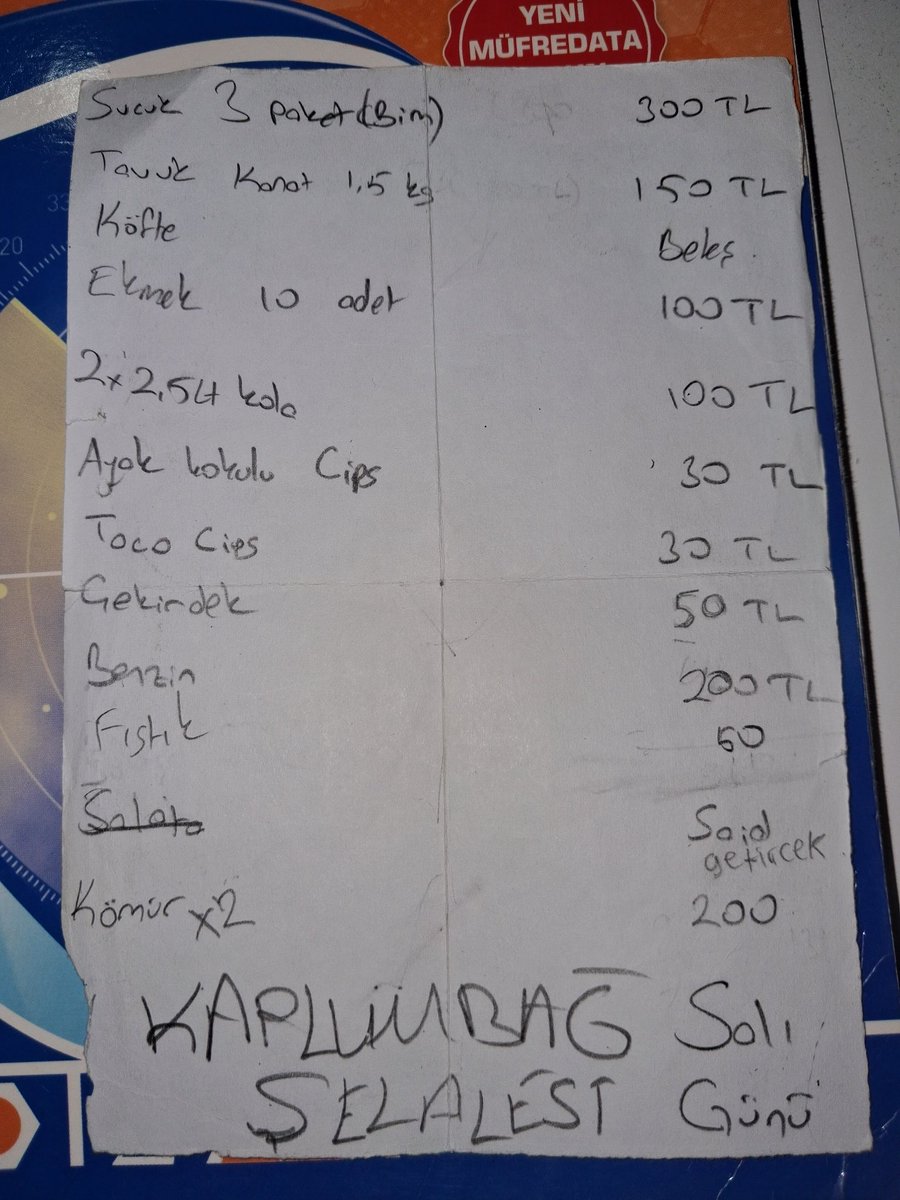 YENİ
MÜFREDATA
Sucuk 3 paket (Bim) 300 TL
Tavuk Kanat 1,5 kg 150 TL
Köfte Beleş
Ekmek 10 adet 100 TL
2x2,5Lt kola 100 TL
Ayak kokulu Cips 30 TL
Toco Cips 30 TL
Çekirdek 50 TL
Benzin 200 TL
Fıstık 50
Salata Said
getircek
Kömür x2 200
KAPLUMBAĞ Salı
ŞELALEST Günü
33
20